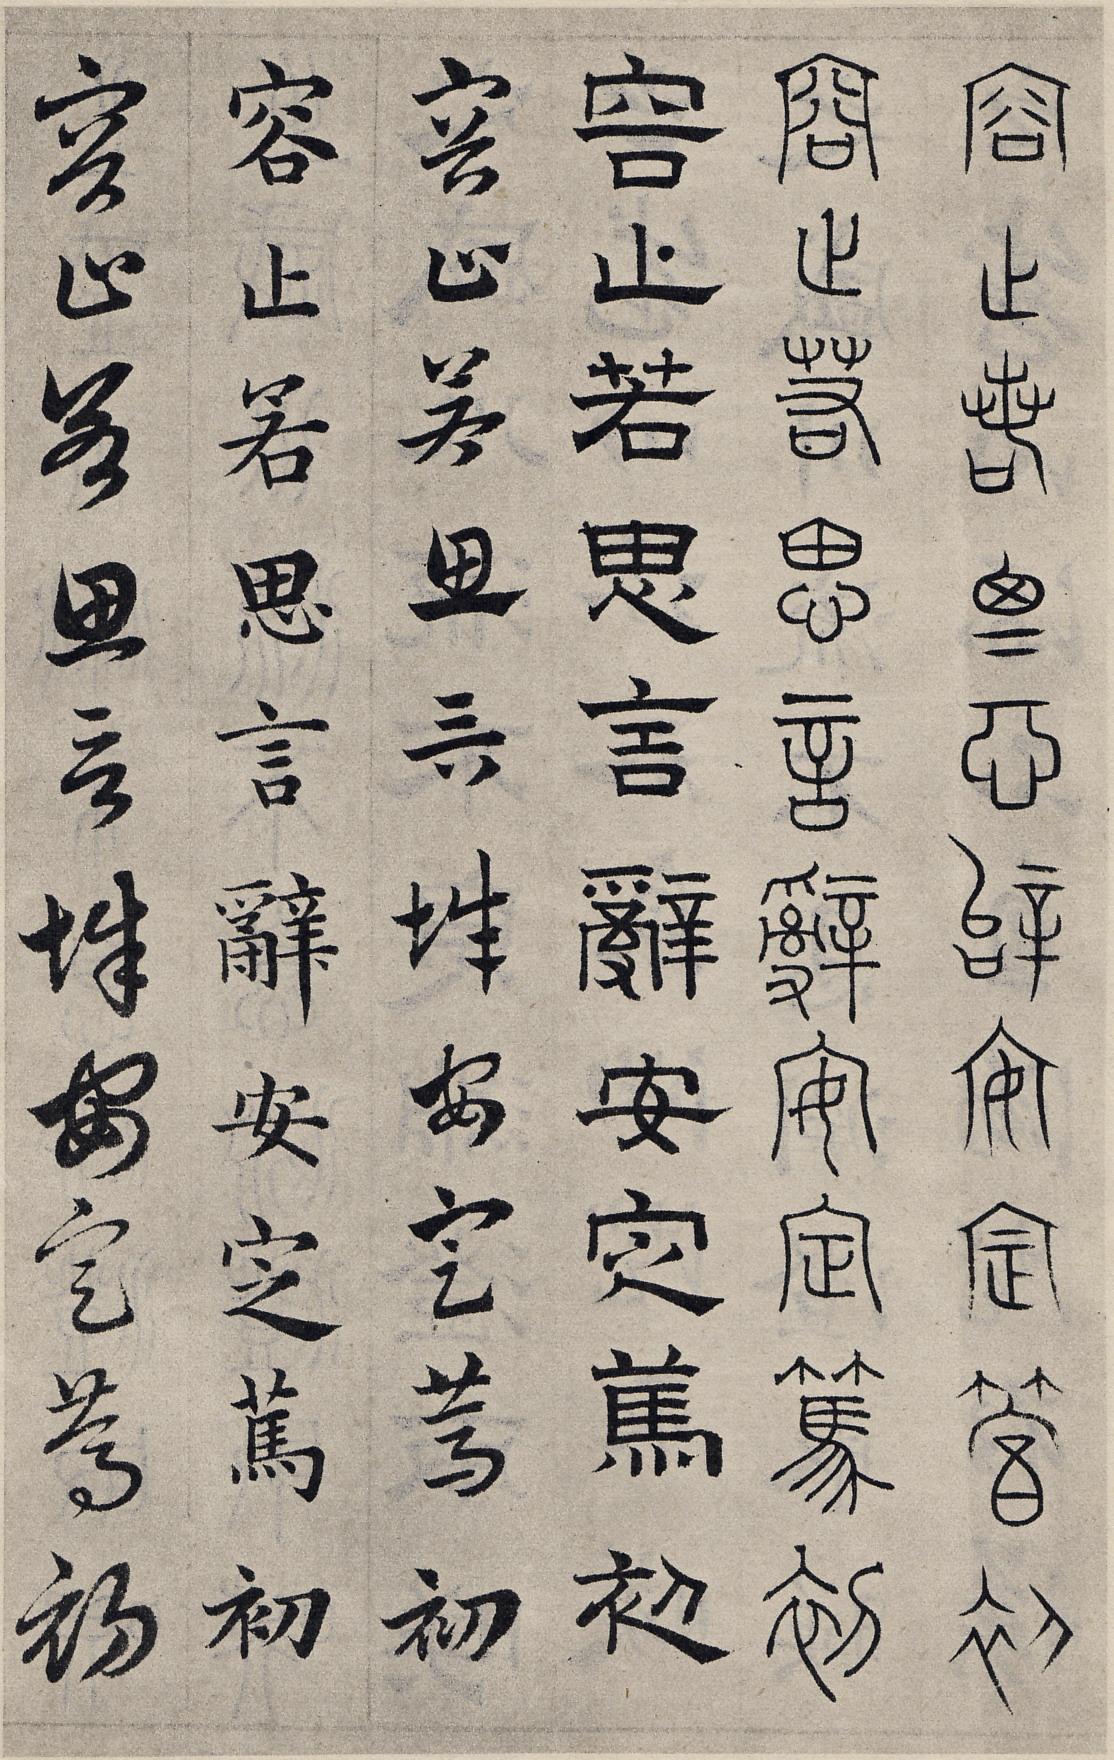 容止若思言辭安定篤初
容止若思言辭安定篤初
容止若思言辭安定篤初
容止若思言辭安定篤初
容止若思言辭安定篤初
容止若思言辭安定篤初